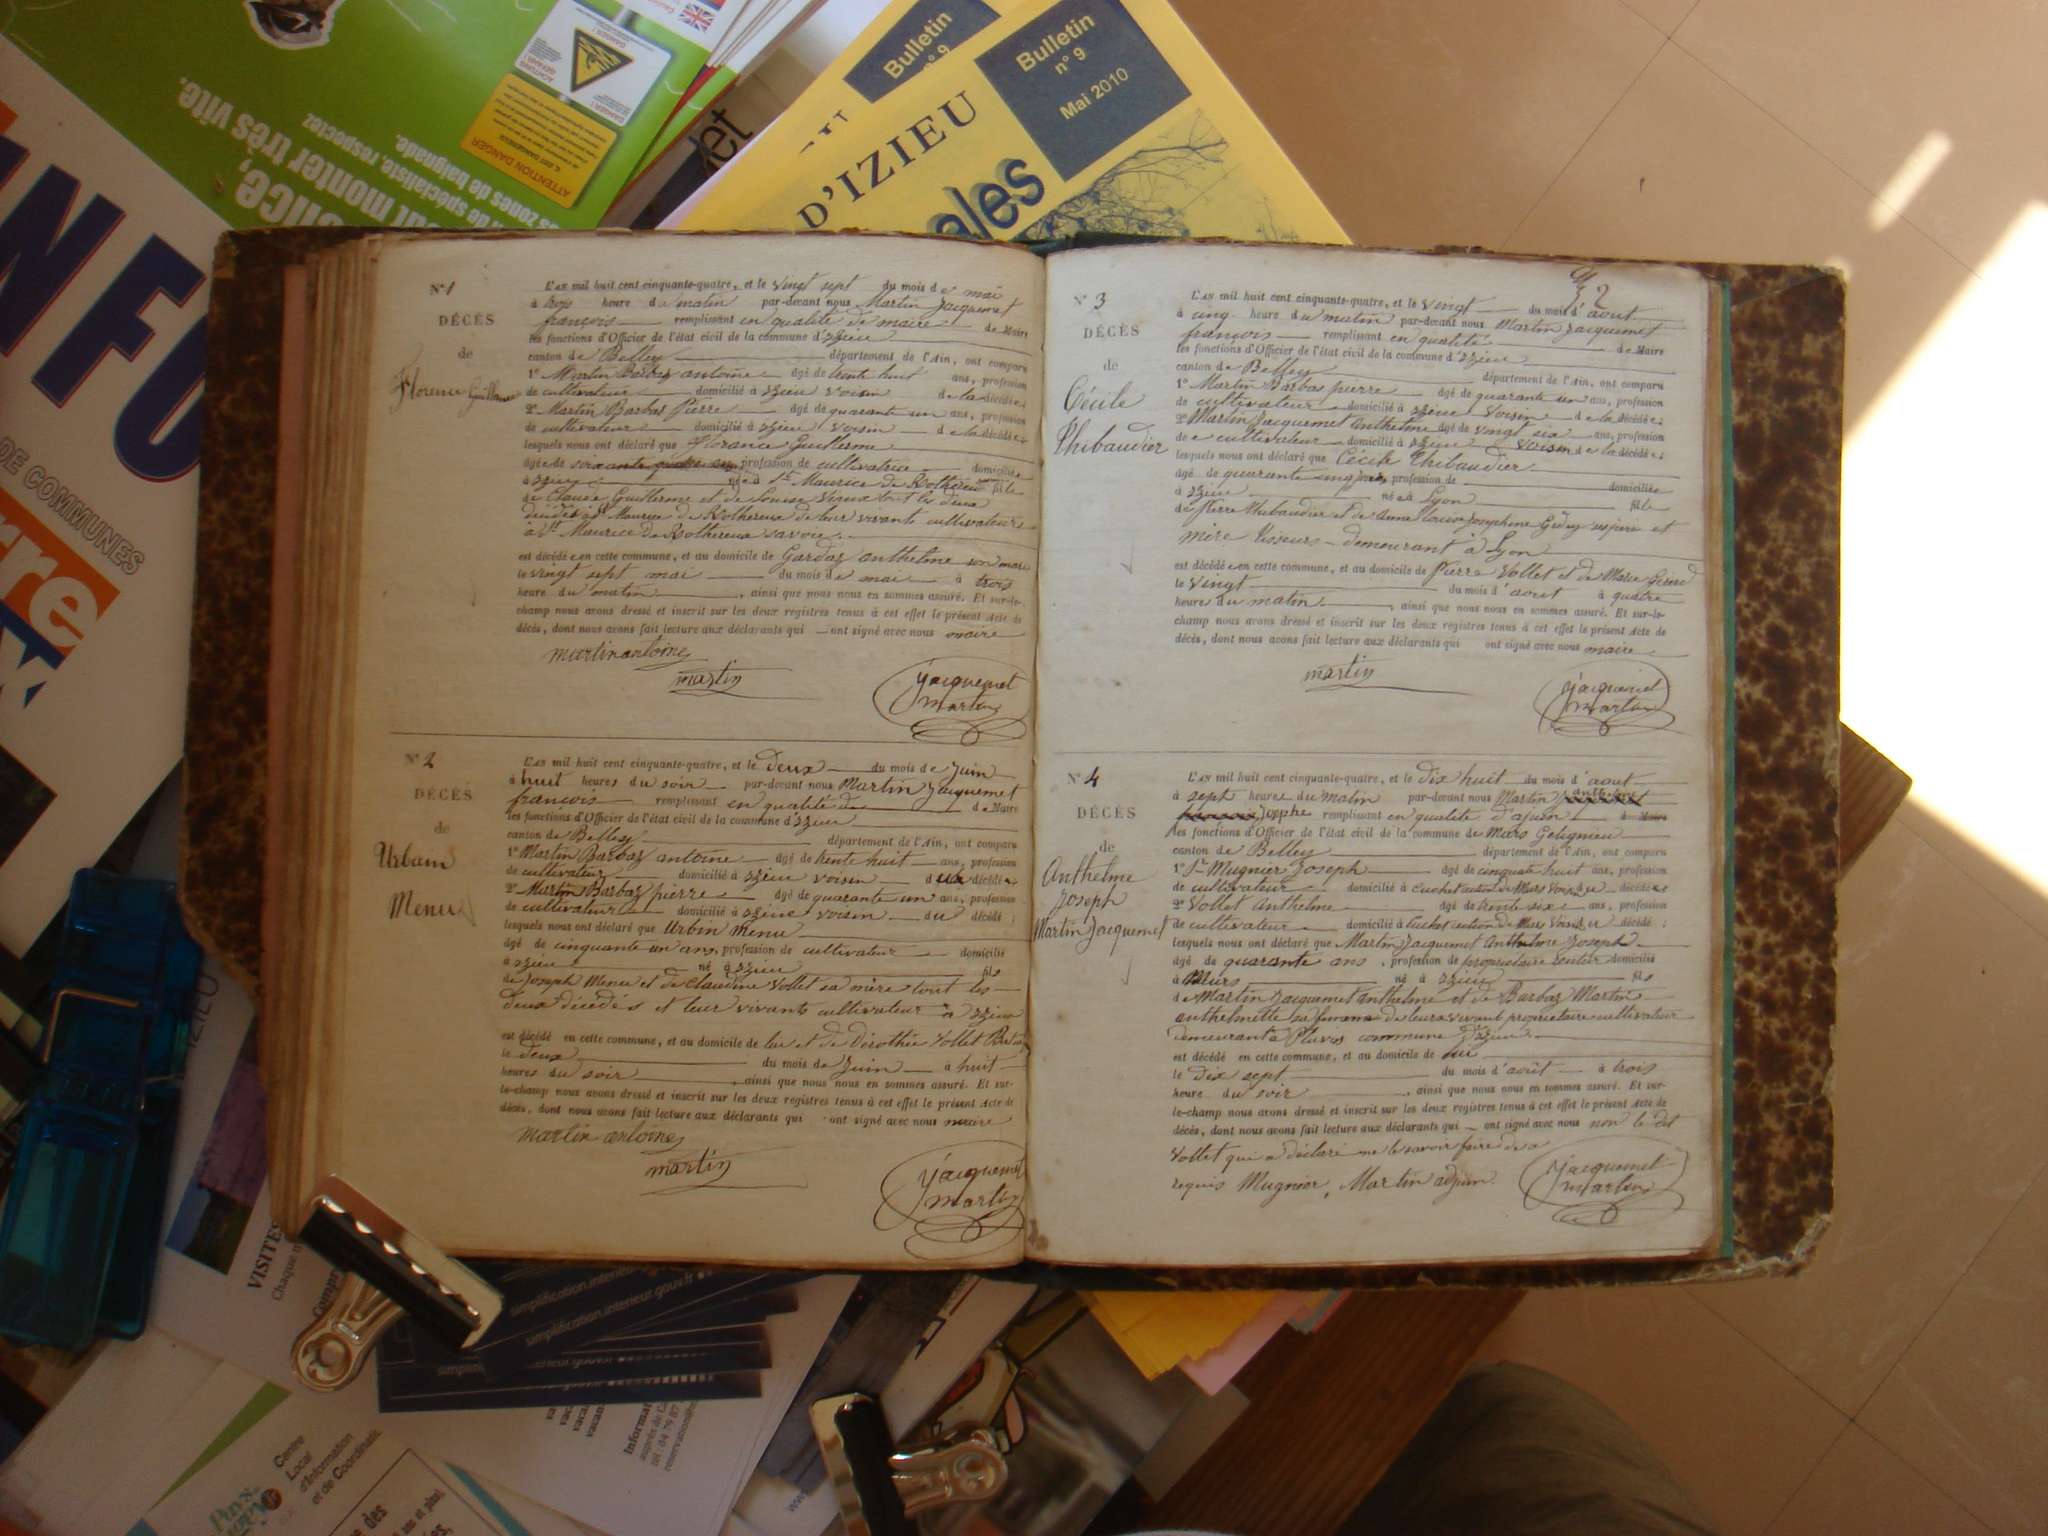 Bulletin
n° 9
Bulletin
n° 9
Mai 2010
D'IZIEU
ales
INFO
DE COMMUNES
rre
très vite.
ur monter
de spécialiste, respectez
s zones de baignade.
ATTENTION DANGER
N° 1
DÉCÈS
de
Florence Guillerme
L'AN mil huit cent cinquante-quatre, et le vingt sept du mois de mai
à trois heure du matin par-devant nous Martin Jacquemet
françois remplissant en qualité de maire de Maire
les fonctions d'Officier de l'état civil de la commune d'izieu
canton de Belley département de l'Ain, ont comparu
1° Martin Barbaz antoine âgé de trente huit ans, profession
de cultivateur domicilié à izieu voisin de la décédée;
2° Martin Barbaz Pierre âgé de quarante un ans, profession
de cultivateur domicilié à izieu voisin de la décédée;
lesquels nous ont déclaré que florence Guillerme
âgée de soixante quatre ans profession de cultivatrice domiciliée
à izieu née à St Maurice de Rothereux fille
de Claude Guillerme et de Louise Vieux tout les deux
décédés à St Maurice de Rothereux de leur vivants cultivateurs
à St Maurice de Rothereux savoie
est décédée en cette commune, et au domicile de Gardaz anthelme son mari
le vingt sept mai du mois de mai à trois
heure du matin, ainsi que nous nous en sommes assuré. Et sur-le-
champ nous avons dressé et inscrit sur les deux registres tenus à cet effet le présent Acte de
décès, dont nous avons fait lecture aux déclarants qui ont signé avec nous maire
martin antoine
martin
jacquemet
martin
N° 2
DÉCÈS
de
Urbain
Menu
L'AN mil huit cent cinquante-quatre, et le Deux du mois de Juin
à huit heures du soir par-devant nous Martin Jacquemet
françois remplissant en qualité de de Maire
les fonctions d'Officier de l'état civil de la commune d'izieu
canton de Belley département de l'Ain, ont comparu
1° Martin Barbaz antoine âgé de trente huit ans, profession
de cultivateur domicilié à izieu voisin du décédé;
2° Martin Barbaz pierre âgé de quarante un ans, profession
de cultivateur domicilié à izieu voisin du décédé;
lesquels nous ont déclaré que Urbin Menu
âgé de cinquante un ans, profession de cultivateur domicilié
à izieu né à izieu fils
de Joseph Menu et de Claudine Vollet sa mère tout les
deux décédés et leur vivants cultivateur à izieu
est décédé en cette commune, et au domicile de lui et de Dorothée Vollet
le deux du mois de Juin à huit
heures du soir, ainsi que nous nous en sommes assuré. Et sur-
le-champ nous avons dressé et inscrit sur les deux registres tenus à cet effet le présent Acte de
décès, dont nous avons fait lecture aux déclarants qui ont signé avec nous maire
martin antoine
martin
jacquemet
martin
2
N° 3
DÉCÈS
de
Cécile
Thibaudier
L'AN mil huit cent cinquante-quatre, et le vingt du mois d'aout
à cinq heure du matin par-devant nous Martin Jacquemet
françois remplissant en qualité de Maire
les fonctions d'Officier de l'état civil de la commune d'izieu
canton de Belley département de l'Ain, ont comparu
1° Martin Barbas pierre âgé de quarante un ans, profession
de cultivateur domicilié à izieu Voisin de la décédée;
2° Martin Jacquemet Anthelme âgé de vingt six ans, profession
de cultivateur domicilié à izieu voisin de la décédée;
lesquels nous ont déclaré que Cécile Thibaudier
âgé de quarante cinq jours, profession de domiciliée
à izieu née à Lyon fille
de Pierre Thibaudier et de Anne Josephine ses père et
mère Tisseurs demeurant à Lyon
est décédée en cette commune, et au domicile de Pierre Vollet et de Marie
le vingt du mois d'aout à quatre
heure du matin, ainsi que nous nous en sommes assuré. Et sur-le-
champ nous avons dressé et inscrit sur les deux registres tenus à cet effet le présent Acte de
décès, dont nous avons fait lecture aux déclarants qui ont signé avec nous maire
martin
jacquemet
martin
N° 4
DÉCÈS
de
Anthelme
Joseph
Martin Jacquemet
L'AN mil huit cent cinquante-quatre, et le Dix huit du mois d'aout
à sept heure du matin par-devant nous Martin anthelme
Jopphe remplissant en qualité d'ajoin de Maire
les fonctions d'Officier de l'état civil de la commune de Murs Gelignieu
canton de Belley département de l'Ain, ont comparu
1° Sr Mugnier Joseph âgé de cinquante huit ans, profession
de cultivateur domicilié à Cuchet section de Murs Voisin du décédé
2° Vollet Anthelme âgé de trente six ans, profession
de cultivateur domicilié à Cuchet section de Murs Voisin du décédé;
lesquels nous ont déclaré que Martin Jacquemet Anthelme Joseph
âgé de quarante ans, profession de propriétaire rentier domicilié
à Murs né à izieu fils
de Martin Jacquemet anthelme et de Barbaz Martin
anthelmette sa femme de leurs vivant propriétaire cultivateur
demeurant à Pluvis commune d'izieu
est décédé en cette commune, et au domicile de lui
le Dix sept du mois d'août à trois
heure du soir, ainsi que nous nous en sommes assuré. Et sur-
le-champ nous avons dressé et inscrit sur les deux registres tenus à cet effet le présent Acte de
décès, dont nous avons fait lecture aux déclarants qui ont signé avec nous non le dit
Vollet qui a déclaré ne le savoir faire de ce
requis Mugnier, Martin adjoin
jacquemet
martin
VISITES
simplification.interieur.gouv.fr
simplification.interieur.gouv.fr
Centre
Local
d'Information
et de Coordination